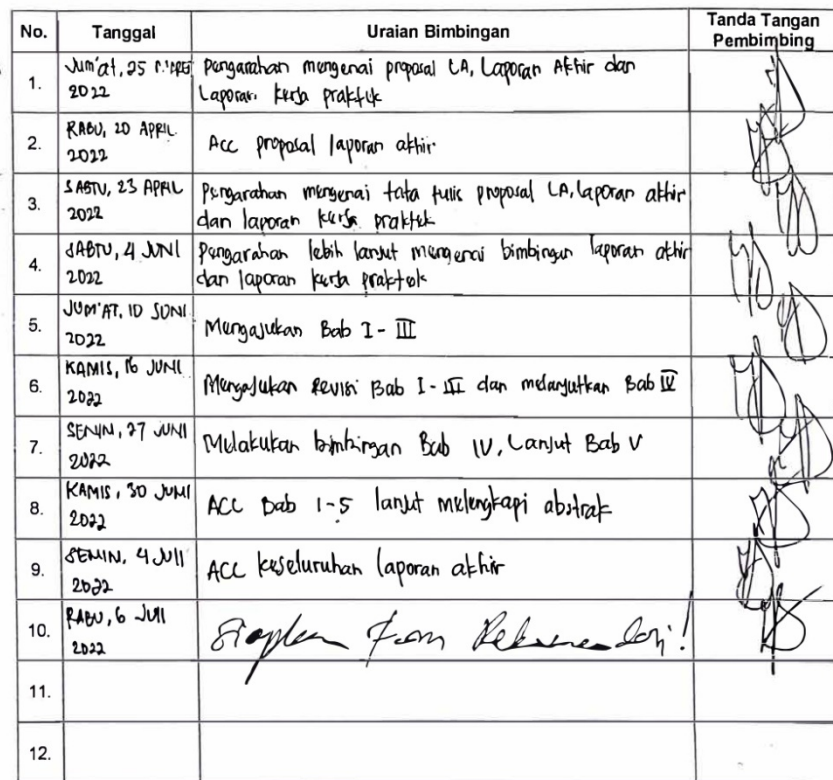 No. Tanggal Uraian Bimbingan Tanda Tangan Pembimbing
1. Jum'at, 25 MARET 2022 Pengarahan mengenai proposal LA, Laporan Akhir dan
Laporan kerja praktek
2. RABU, 20 APRIL 2022 Acc proposal laporan akhir
3. SABTU, 23 APRIL 2022 Pengarahan mengenai tata tulis proposal LA, laporan akhir
dan laporan kerja praktek
4. SABTU, 4 JUNI 2022 Pengarahan lebih lanjut mengenai bimbingan laporan akhir
dan laporan kerja praktek
5. JUM'AT, 10 JUNI 2022 Mengajukan Bab I - III
6. KAMIS, 16 JUNI 2022 Mengajukan Revisi Bab I - III dan melanjutkan Bab IV
7. SENIN, 27 JUNI 2022 Melakukan bimbingan Bab IV, Lanjut Bab V
8. KAMIS, 30 JUNI 2022 ACC Bab 1-5 lanjut melengkapi abstrak
9. SENIN, 4 JULI 2022 ACC keseluruhan laporan akhir
10. RABU, 6 JULI 2022 Siapkan Form Rekomendasi!
11.
12.